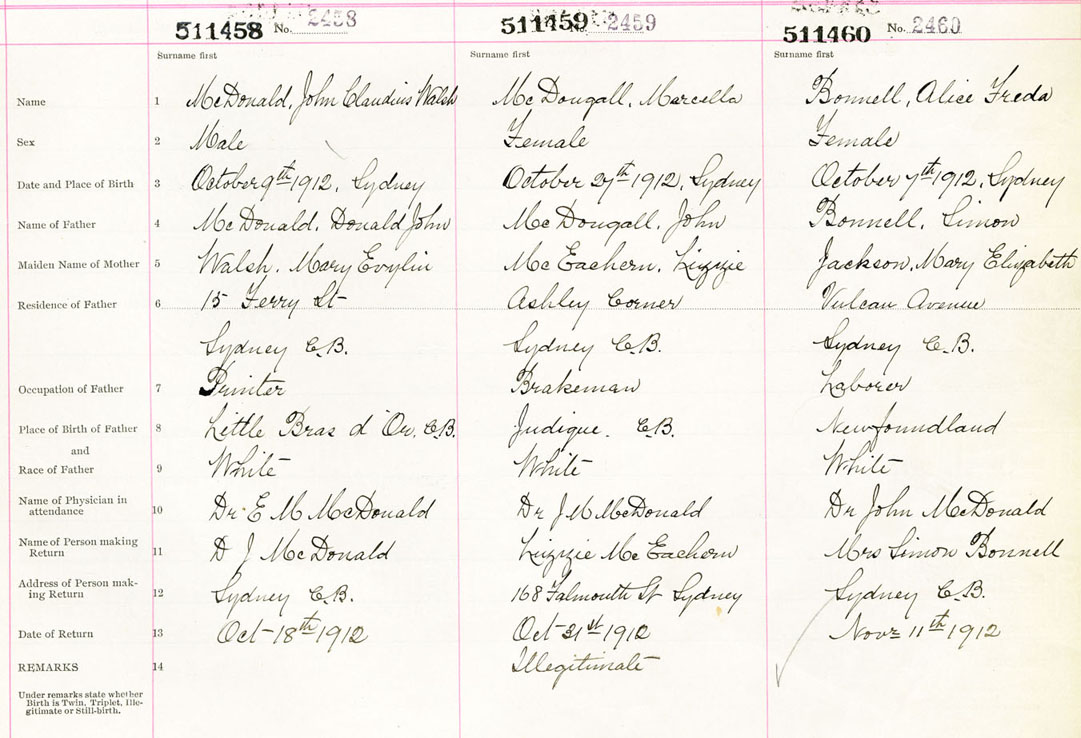 511458 No. 2458 511459 No. 2459 511460 No. 2460
Surname first Surname first Surname first
Name 1 McDonald, John Claudius Walsh McDougall, Marcella Bonnell, Alice Freda
Sex 2 Male Female Female
Date and Place of Birth 3 October 9th 1912, Sydney October 27th 1912, Sydney October 7th 1912, Sydney
Name of Father 4 McDonald, Donald John McDougall, John Bonnell, Simon
Maiden Name of Mother 5 Walsh, Mary Evylin McEachern, Lizzie Jackson, Mary Elizabeth
Residence of Father 6 15 Ferry St Ashley Corner Vulcan Avenue
Sydney C.B. Sydney C.B. Sydney C.B.
Occupation of Father 7 Printer Brakeman Laborer
Place of Birth of Father 8 Little Bras d'Or, C.B. Judique. C.B. Newfoundland
and
Race of Father 9 White White White
Name of Physician in
attendance 10 Dr E M McDonald Dr J M McDonald Dr John McDonald
Name of Person making
Return 11 D J McDonald Lizzie McEachern Mrs Simon Bonnell
Address of Person mak-
ing Return 12 Sydney C.B. 168 Falmouth St Sydney Sydney C.B.
Date of Return 13 Oct 18th 1912 Oct 31st 1912 Novr 11th 1912
REMARKS 14 Illegitimate
Under remarks state whether
Birth is Twin, Triplet, Ille-
gitimate or Still-birth.